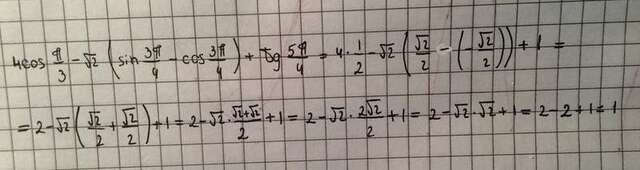 4cos π/3 - √2 (sin 3π/4 - cos 3π/4) + tg 5π/4 = 4 · 1/2 - √2 (√2/2 - (-√2/2)) + 1 =
= 2 - √2 (√2/2 + √2/2) + 1 = 2 - √2 · √2+√2/2 + 1 = 2 - √2 · 2√2/2 + 1 = 2 - √2 · √2 + 1 = 2 - 2 + 1 = 1